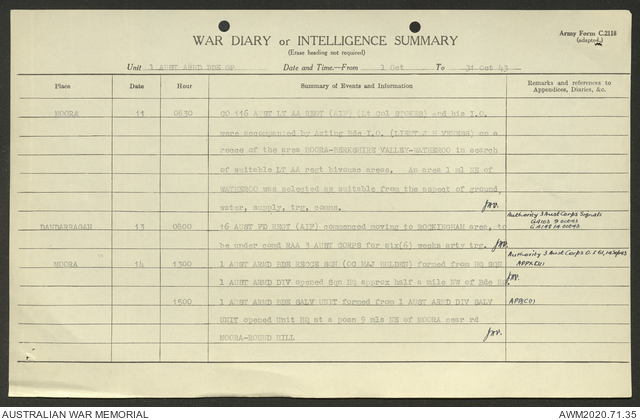 WAR DIARY or INTELLIGENCE SUMMARY
(Erase heading not required)
Army Form C.2118
(adapted)
Unit 1 AUST ARMD BDE GP Date and Time.—From 1 Oct To 31 Oct 43
Place Date Hour Summary of Events and Information Remarks and references to
Appendices, Diaries, &c.
MOORA 11 0830 CO 116 AUST LT AA REGT (AIF) (Lt Col STOKES) and his I.O.
were accompanied by Acting Bde I.O. (LIEUT J M) on a
recce of the area MOORA-BERKSHIRE VALLEY-WATHEROO in search
of suitable LT AA regt bivouac areas. An area 1 ml NE of
WATHEROO was selected as suitable from the aspect of ground,
water, supply, trg, comns.
Authority 3 Aust Corps Signals
DANDARRAGAN 13 0800 16 AUST FD REGT (AIF) commenced moving to ROCKINGHAM area, to
be under comd RAA 3 AUST CORPS for six(6) weeks arty trg.
Authority 3 Aust Corps
MOORA 14 1300 1 AUST ARMD BDE RECCE SQN (OC MAJ HOLDEN) formed from HQ SQN
1 AUST ARMD DIV opened Sqn HQ approx half a mile NW of Bde HQ.
1500 1 AUST ARMD BDE SALV UNIT formed from 1 AUST ARMD DIV SALV
UNIT opened Unit HQ at a posn 9 mls NE of MOORA near rd
MOORA-ROUND HILL
AUSTRALIAN WAR MEMORIAL AWM2020.71.35